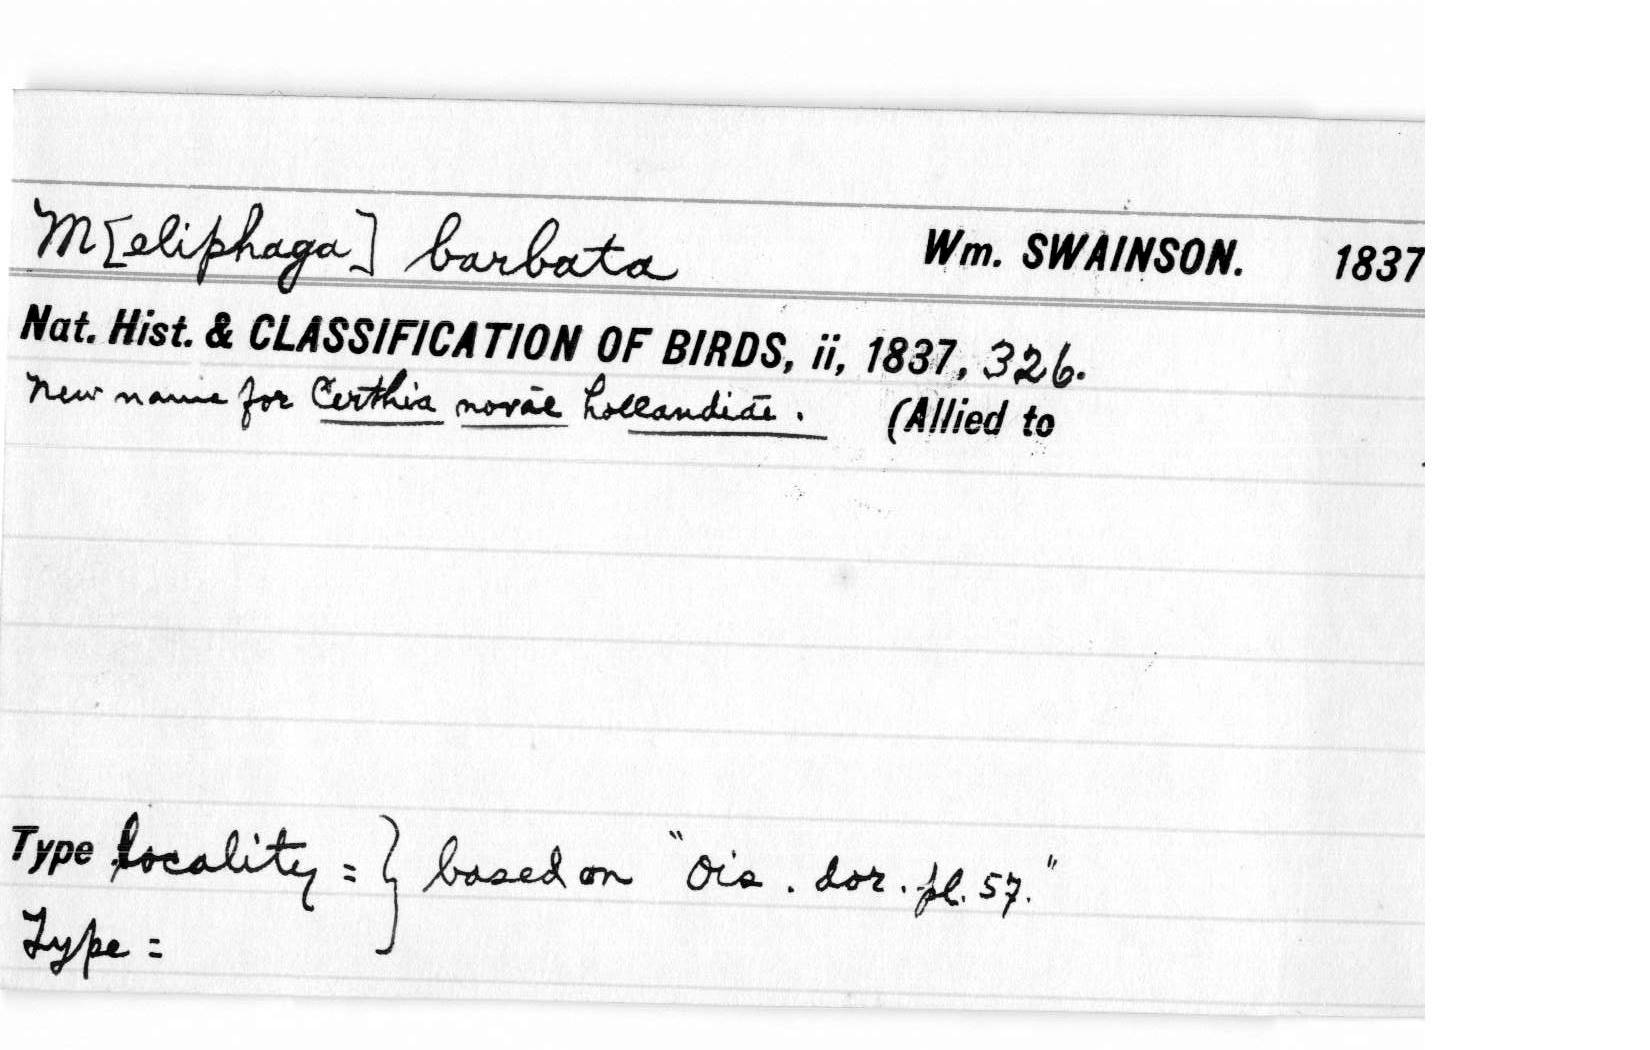 M[eliphaga] barbata Wm. SWAINSON. 1837
Nat. Hist. & CLASSIFICATION OF BIRDS, ii, 1837, 326.
New name for Certhia novae hollandiae. (Allied to
Type locality = } based on "Ois. dor. pl. 57."
Type =